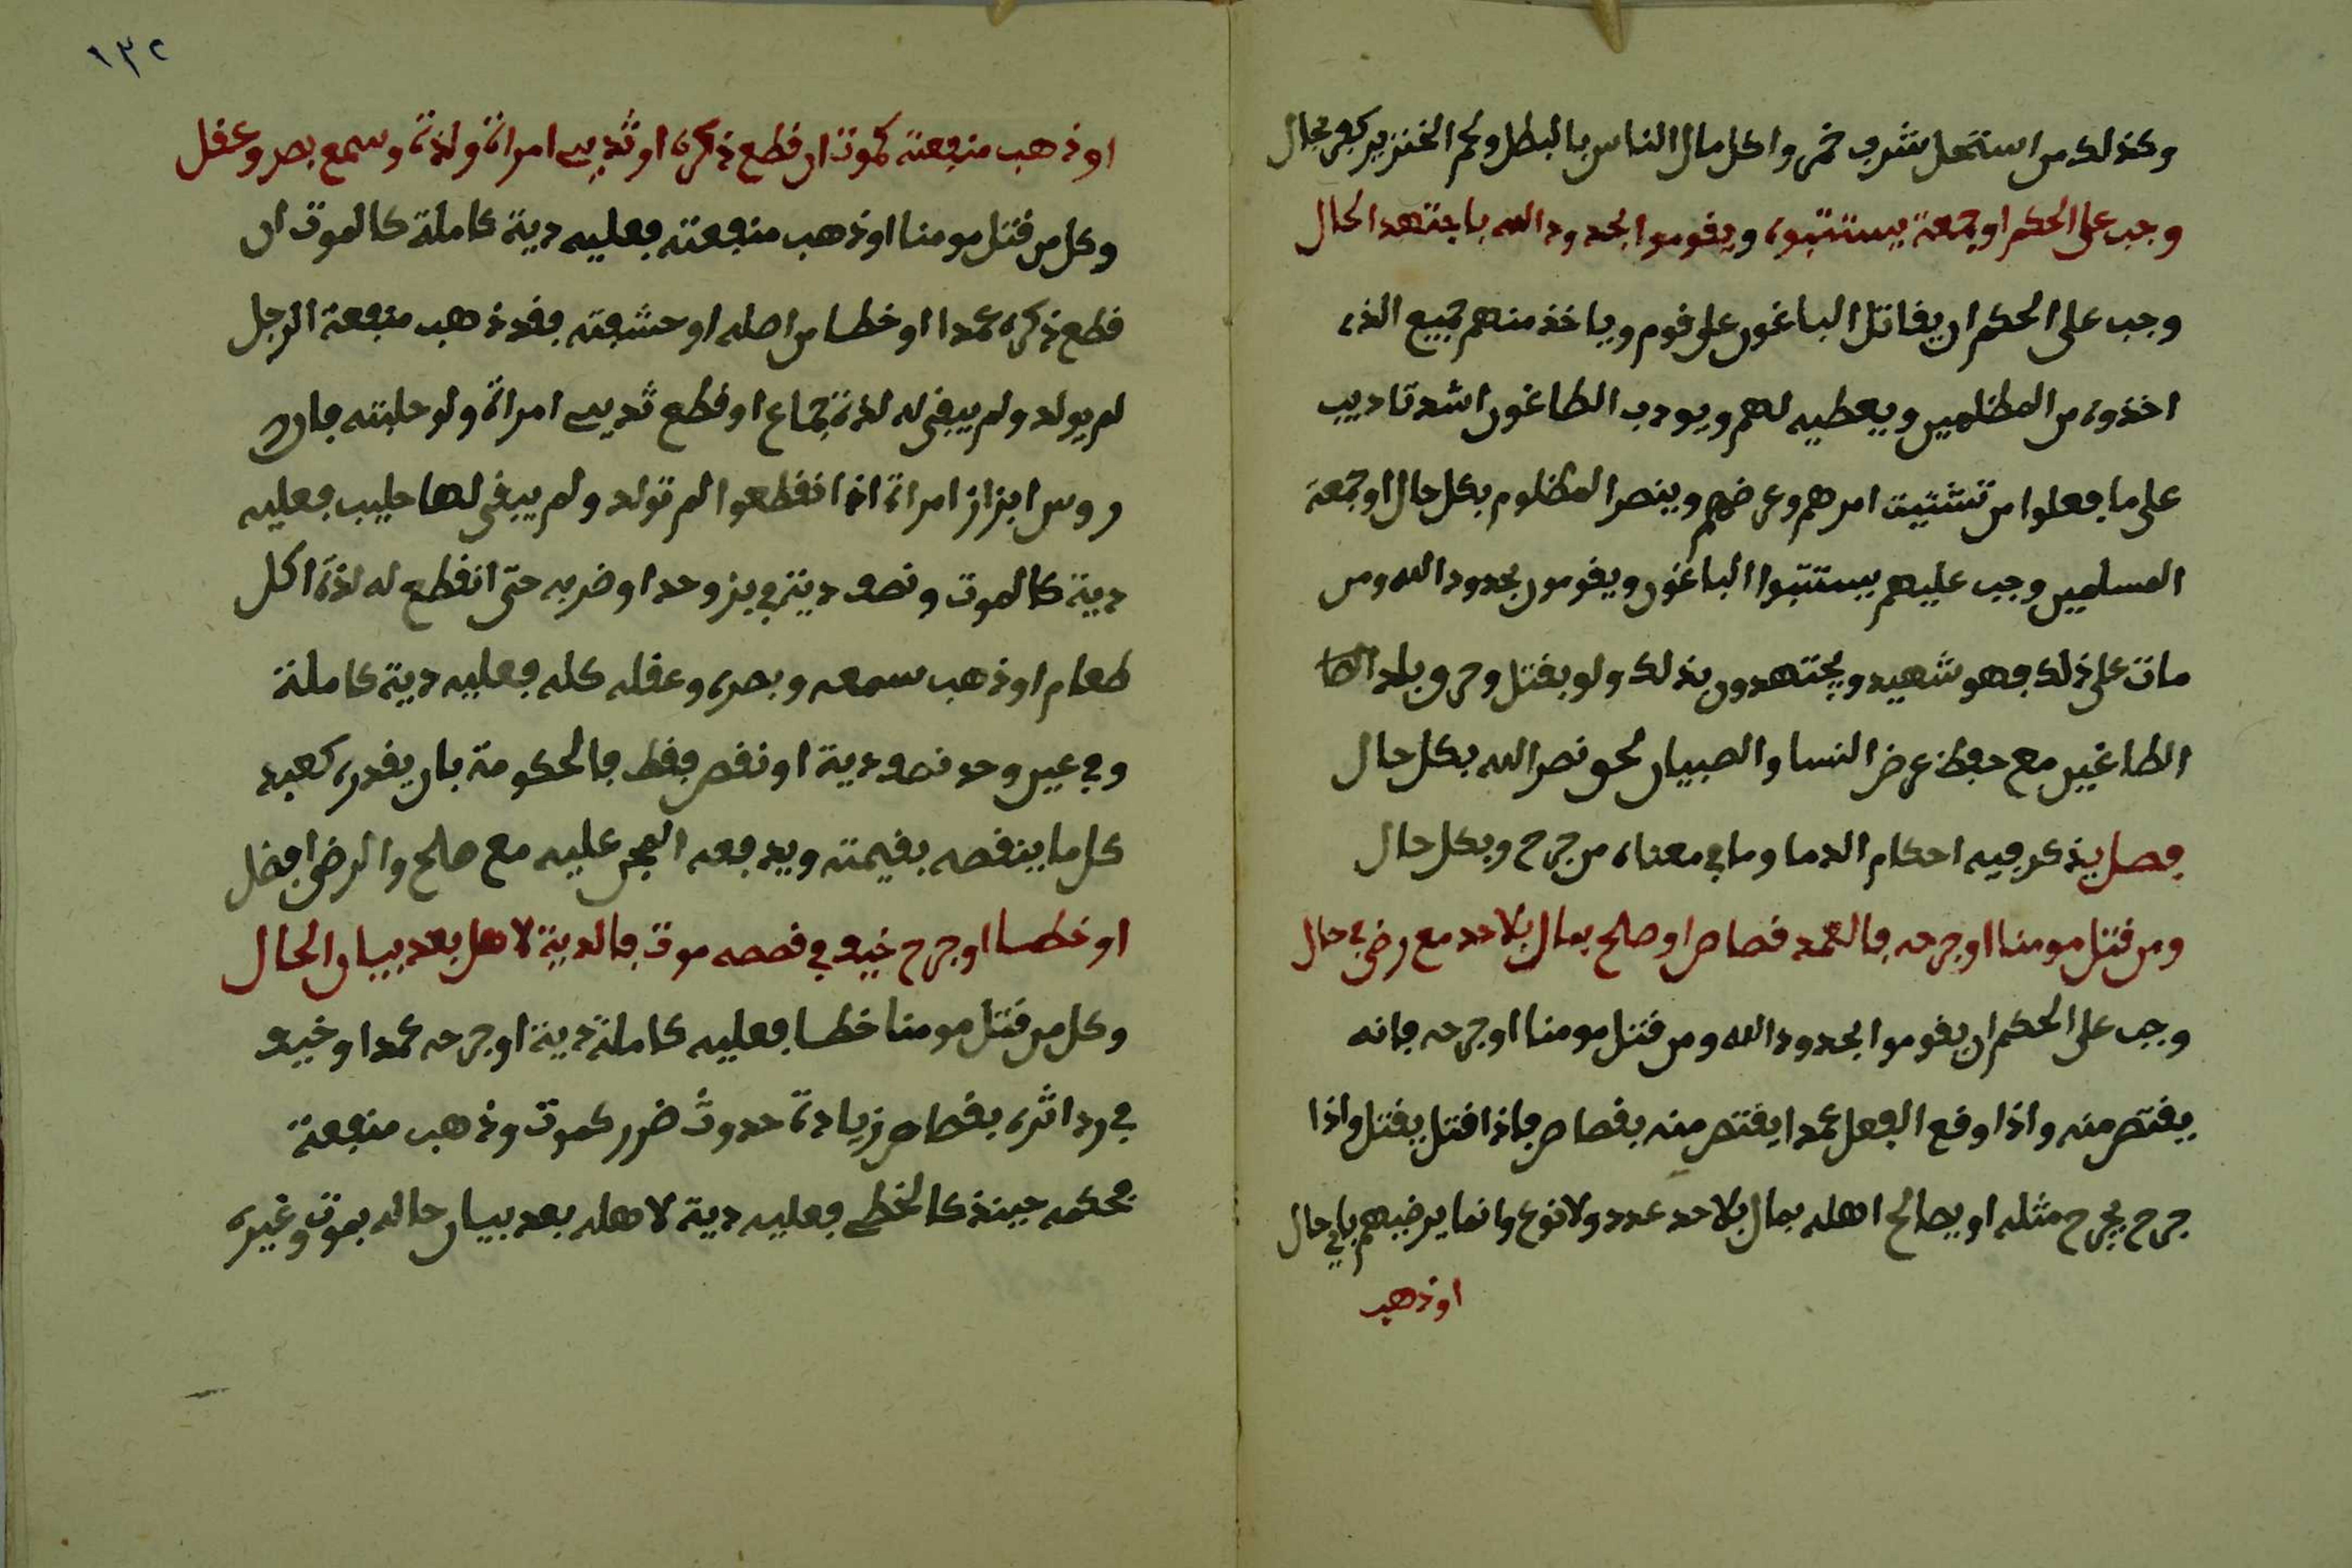 وكذلك من استحل شرب خمر واكل مال الناس بالبطل ولحم الخنزير كفر بحال
وجب على الحكم او جمعة يستتبوه ويقوموا بحدود الله باجتهد الحال
وجب على الحكم ان يقاتل الباغون على قوم وياخذ منهم جميع الذى
اخذوه من المظلمين ويعطيه لهم ويودب الطاغون اشد تاديب
على ما فعلوا من تشتيت امرهم وعرضهم وينصر المظلوم بكل حال او جمعة
المسلمين وجب عليهم يستتبوا الباغون ويقومون بحدود الله ومن
مات على ذلك فهو شهيد ويجتهدون بذلك ولو بقتل وحرق بلد
الطاغين مع حفظ عرض النسا والصبيان لحق نصر الله بكل حال
فصل يذكر فيه احكام الدما وما في معناه من جرح وبكل حال
ومن قتل مومنا او جرحه فالعمد قصاص او صلح بمال بلا حد مع رضى في حال
وجب على الحكم ان يقوموا بحدود الله ومن قتل مومنا او جرحه فانه
يقتص منه واذا وقع الفعل عمدا يقتص منه بقصاص فاذا قتل يقتل واذا
جرح يجرح مثله او يصالح اهله بمال بلا حد عدد ولا نوع وانما يرضيهم باي حال
او ذهب
١٣٢
او ذهب منفعة كموت ان قطع ذكره او ثديى امراة ولذة وسمع بصر وعقل
وكل من قتل مومنا او ذهب منفعته فعليه دية كاملة كالموت ان
قطع ذكره عمدا او خطا من اصله او حشفته فقد ذهب منفعة الرجل
لم يولد ولم يبقى له لذة جماع او قطع ثديى امراة ولو حلبته فان
روس ابزاز امراة اذا انقطعوا لم تولد ولم يبقى لها حليب فعليه
دية كالموت ونصف دية في بز وحد او ضربه حتى انقطع له لذة اكل
طعام او ذهب سمعه وبصره وعقله كله فعليه دية كاملة
وفي عين وحد نصف دية او نقص فقط فالحكومة بان يقدره كعبد
كل ما ينقصه بقيمته ويدفعه المجر عليه مع صلح والرضى افضل
او خطا او جرح خيف في قصصه موت فالدية لاهل بعد بيان الحال
وكل من قتل مومنا خطا فعليه كاملة دية او جرحه عمدا وخيف
في رد اثره بقصاص زيادة حدوث ضرر كموت وذهب منفعة
فحكمه حينئذ كالخطى فعليه دية لاهله بعد بيان حاله بموت وغيره